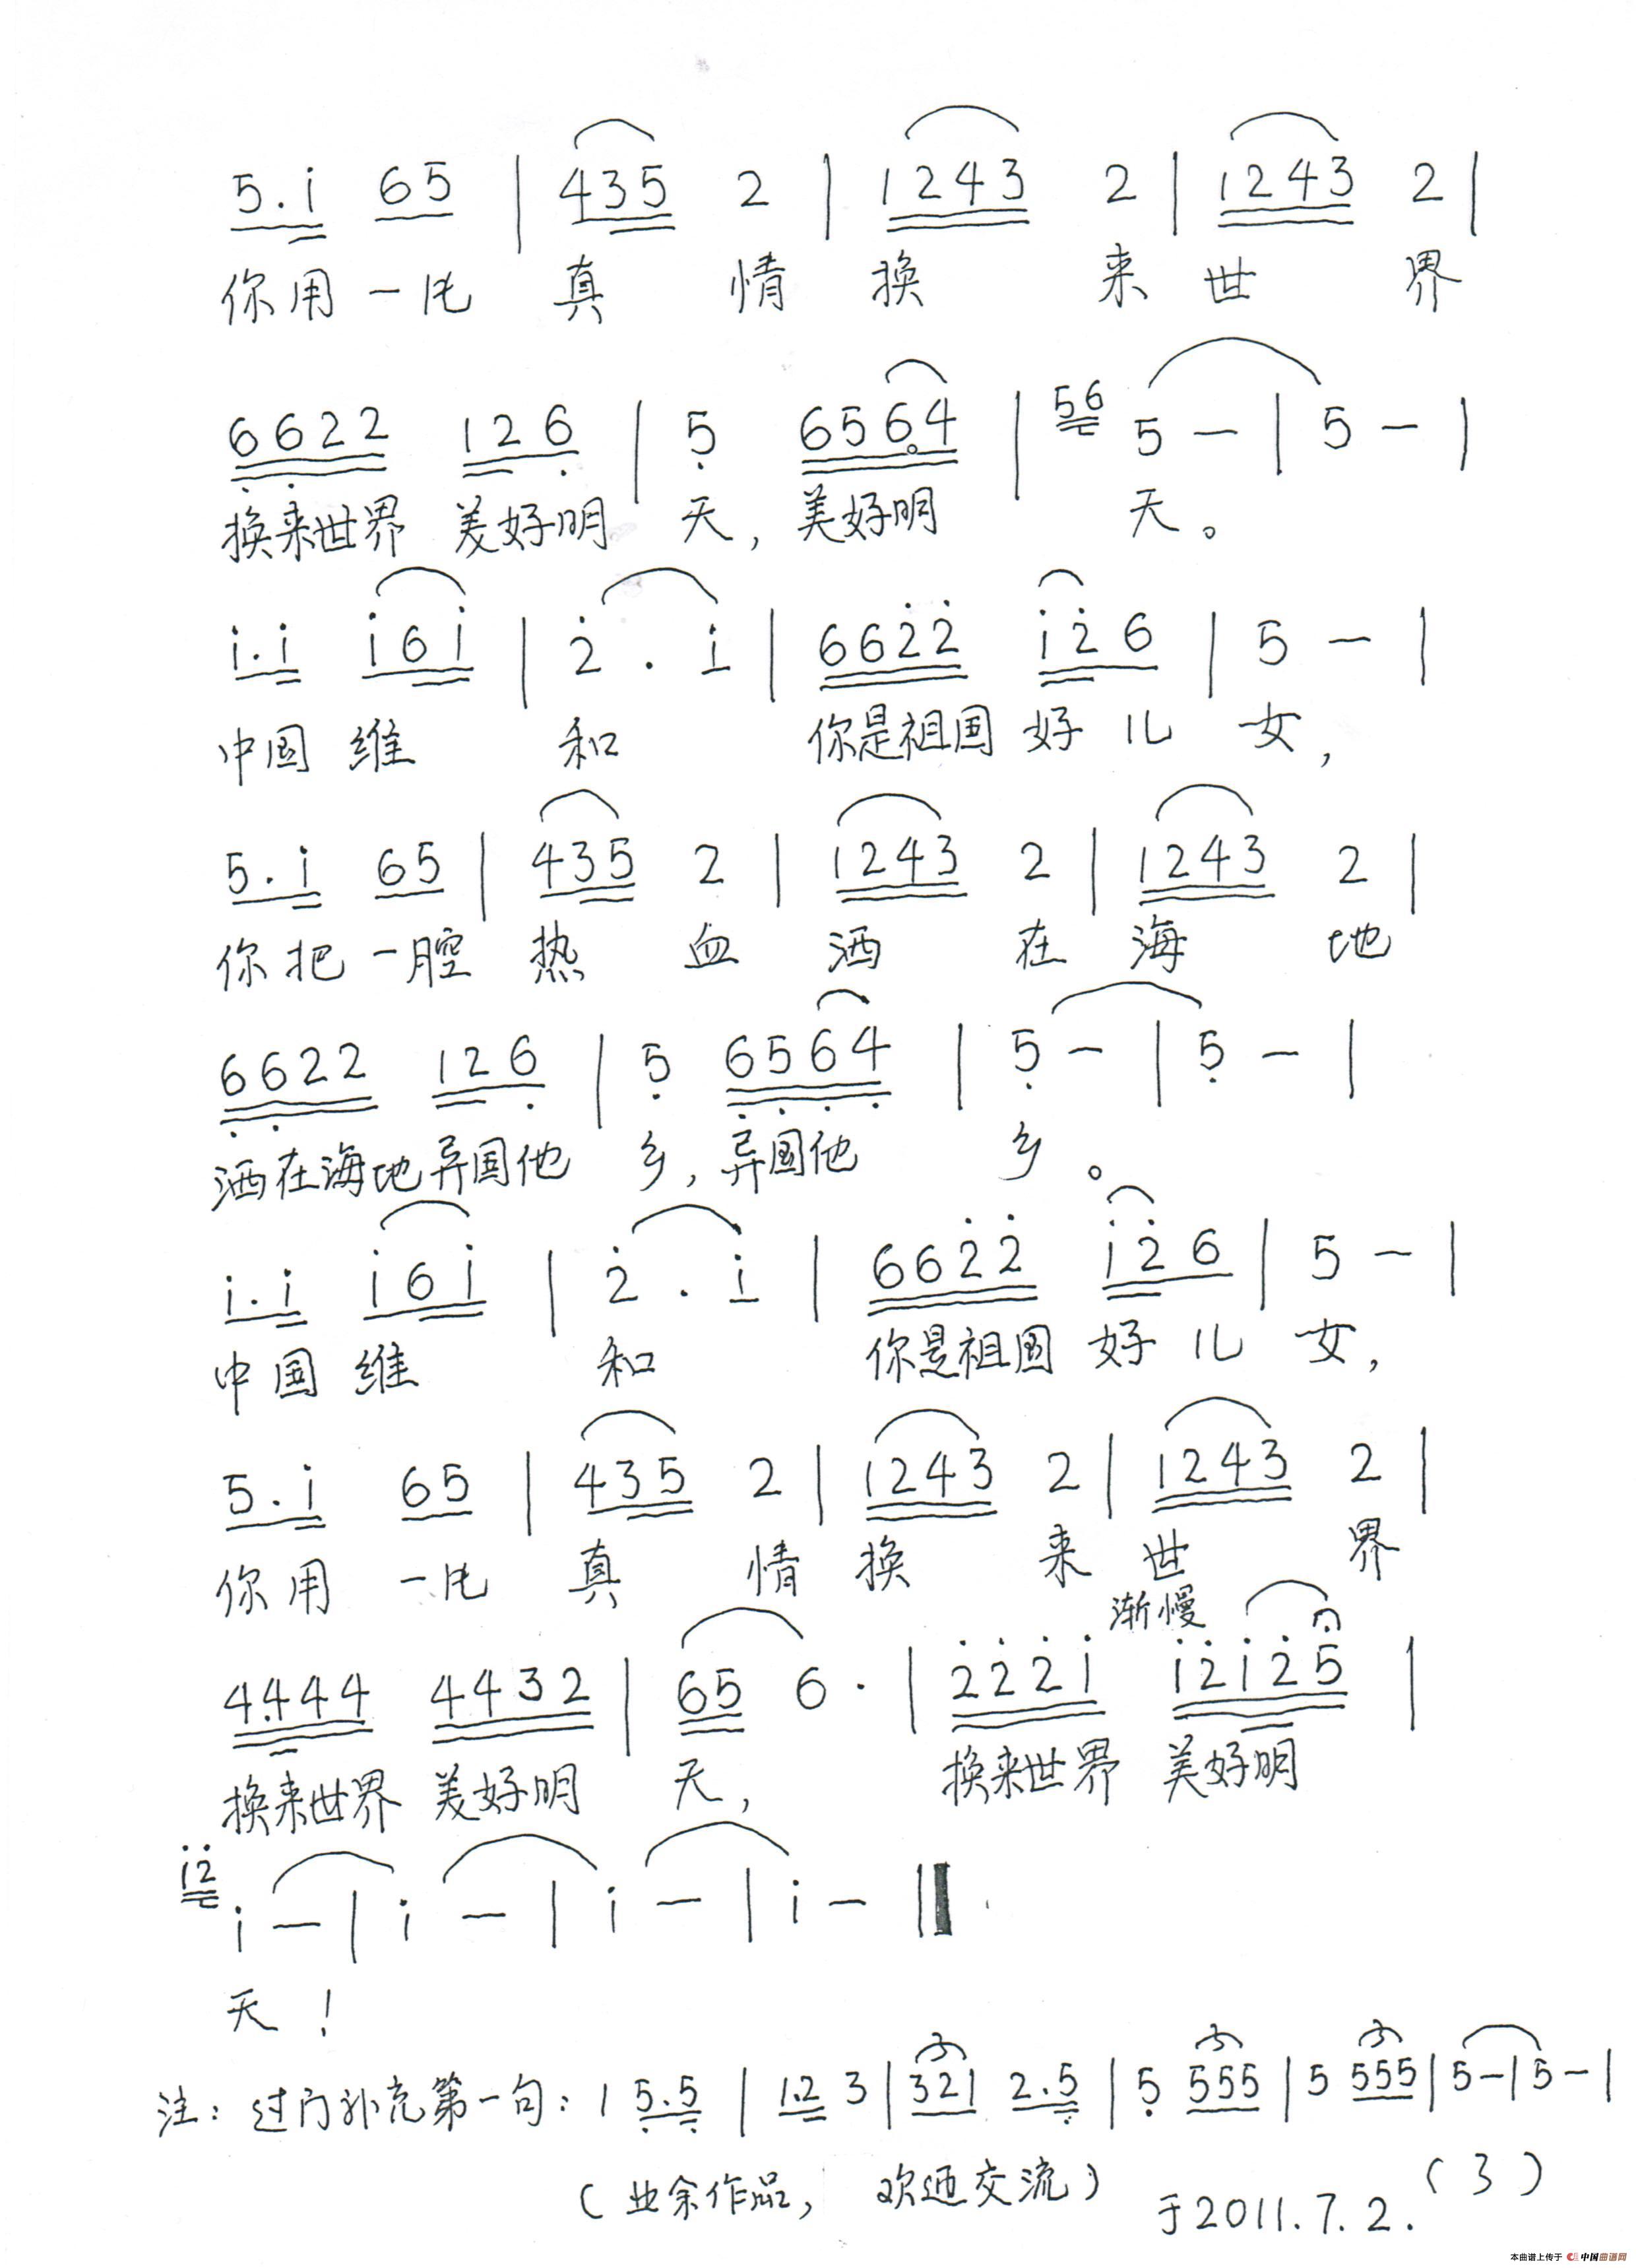 5.i 65 | 435 2 | 1243 2 | 1243 2 |
你用一片 真 情 换 来 世 界
6622 126 | 5 6564 | 56 5 — | 5 — |
换来世界 美好明 天，美好明 天。
i.i i6i | 2 . i | 6622 i26 | 5 — |
中国 维 和 你是祖国 好 儿 女，
5.i 65 | 435 2 | 1243 2 | 1243 2 |
你把一腔 热 血 洒 在 海 地
6622 126 | 5 6564 | 5 — | 5 — |
洒在海地异国他 乡，异国他 乡。
i.i i6i | 2 . i | 6622 i26 | 5 — |
中国 维 和 你是祖国 好 儿 女，
5.i 65 | 435 2 | 1243 2 | 1243 2 |
你用 一片 真 情 换 来 世 界
渐慢
4.444 4432 | 65 6 . | 222i i2i25 |
换来世界 美好明 天， 换来世界 美好明
i2 i — | i — | i — | i — ‖
天！
注：过门补充第一句：1 5.5 | 1.2 3 | 321 2.5 | 5 555 | 5 555 | 5 — | 5 — |
（业余作品， 欢迎交流） 于2011.7.2. （3）
本曲谱上传于 中国曲谱网